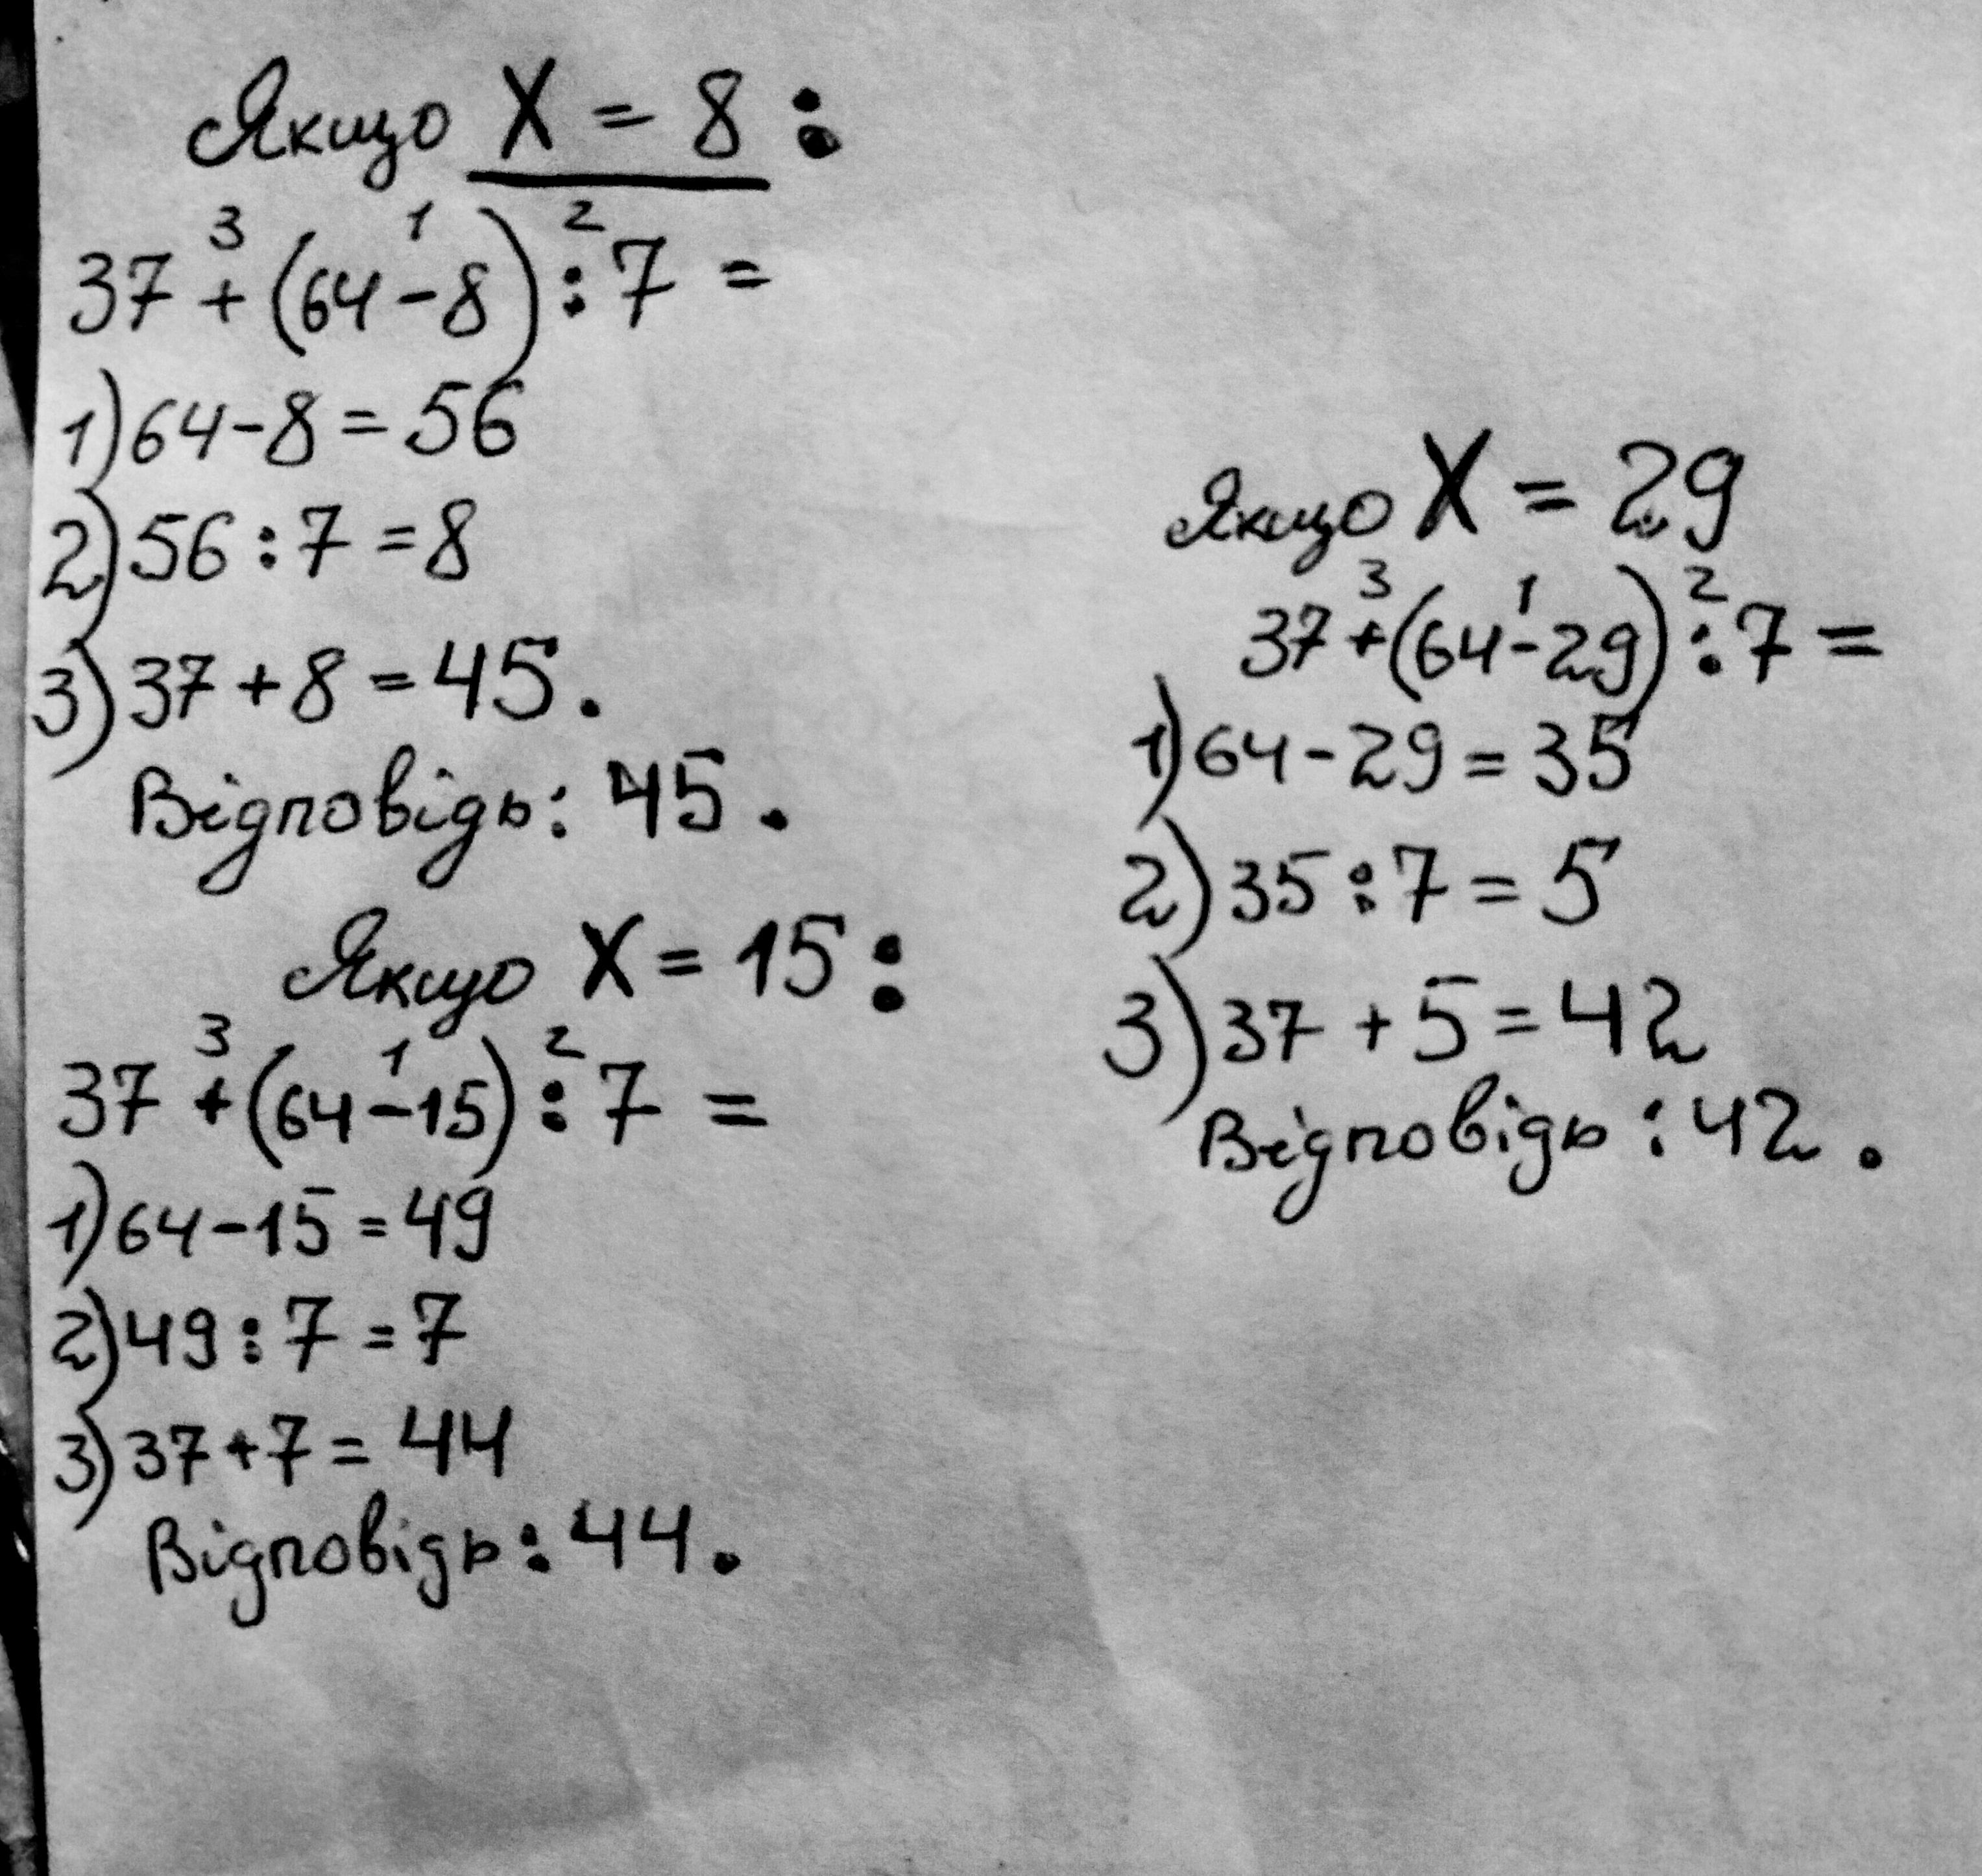 Якщо X = 8 :
3 1 2
37 + (64 - 8) : 7 =
1) 64 - 8 = 56
2) 56 : 7 = 8
3) 37 + 8 = 45.
Відповідь: 45.
Якщо X = 15 :
3 1 2
37 + (64 - 15) : 7 =
1) 64 - 15 = 49
2) 49 : 7 = 7
3) 37 + 7 = 44
Відповідь: 44.
Якщо X = 29
3 1 2
37 + (64 - 29) : 7 =
1) 64 - 29 = 35
2) 35 : 7 = 5
3) 37 + 5 = 42
Відповідь : 42.